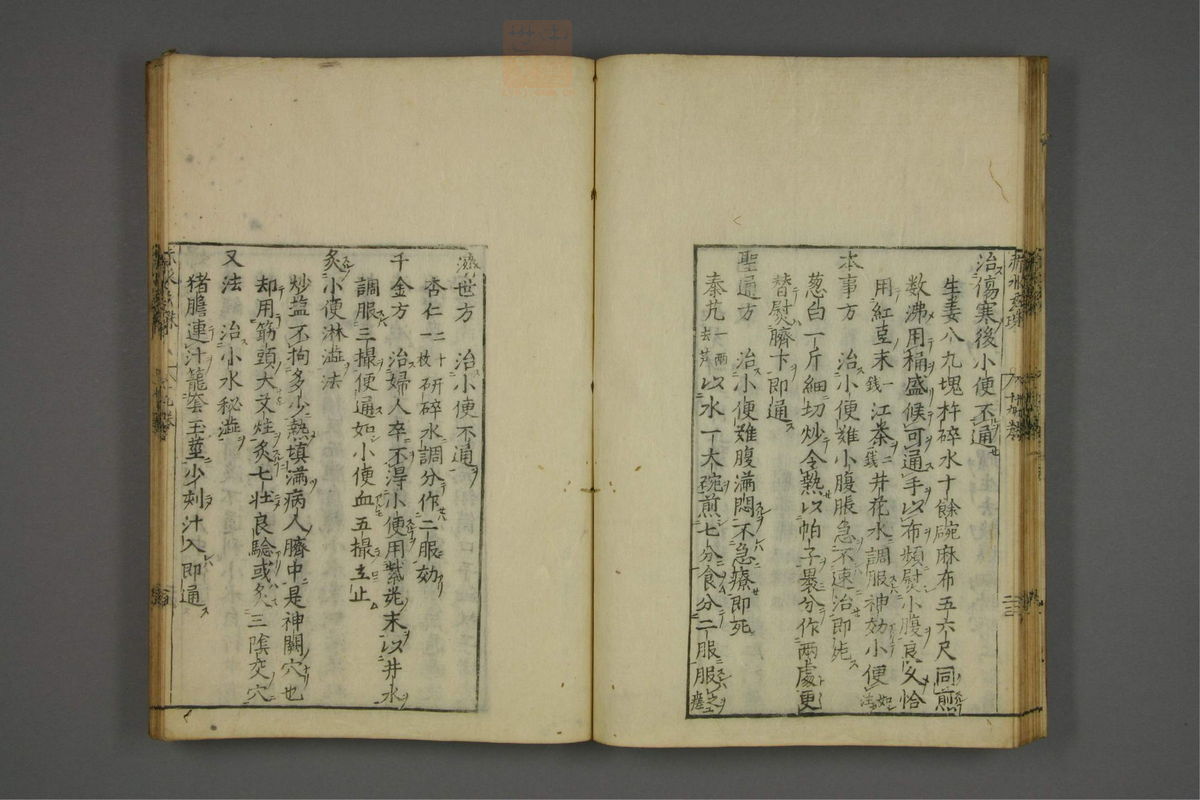 治傷寒後小便不通
生姜八九塊杵碎水十餘碗麻布五六尺同煎
数沸用桶盛候可通手以布頻熨小腹良久恰
用紅豆末一錢江茶二錢井花水調服神効小便如注
本事方　治小便難小腹脹急不速治即死
葱白一斤細切炒令熱以帕子裹分作兩處更
替熨臍下即通
聖通方　治小便難腹滿悶不急療即死
秦艽一兩去芦以水一大碗煎七分食分二服服之立瘥
濟世方　治小便不通
杏仁二十一枚研碎水調分作二服効
千金方　治婦人卒不淂小便用紫菀末以井水
調服三撮便通如小便血五撮立止
灸小便淋澁法
炒塩不拘多少熱填滿病人臍中是神闕穴也
却用筋頭大艾炷灸七壮良驗或灸三陰交穴
又法　治小水秘澁
猪膽連汁籠套玉莖少刻汁入即通